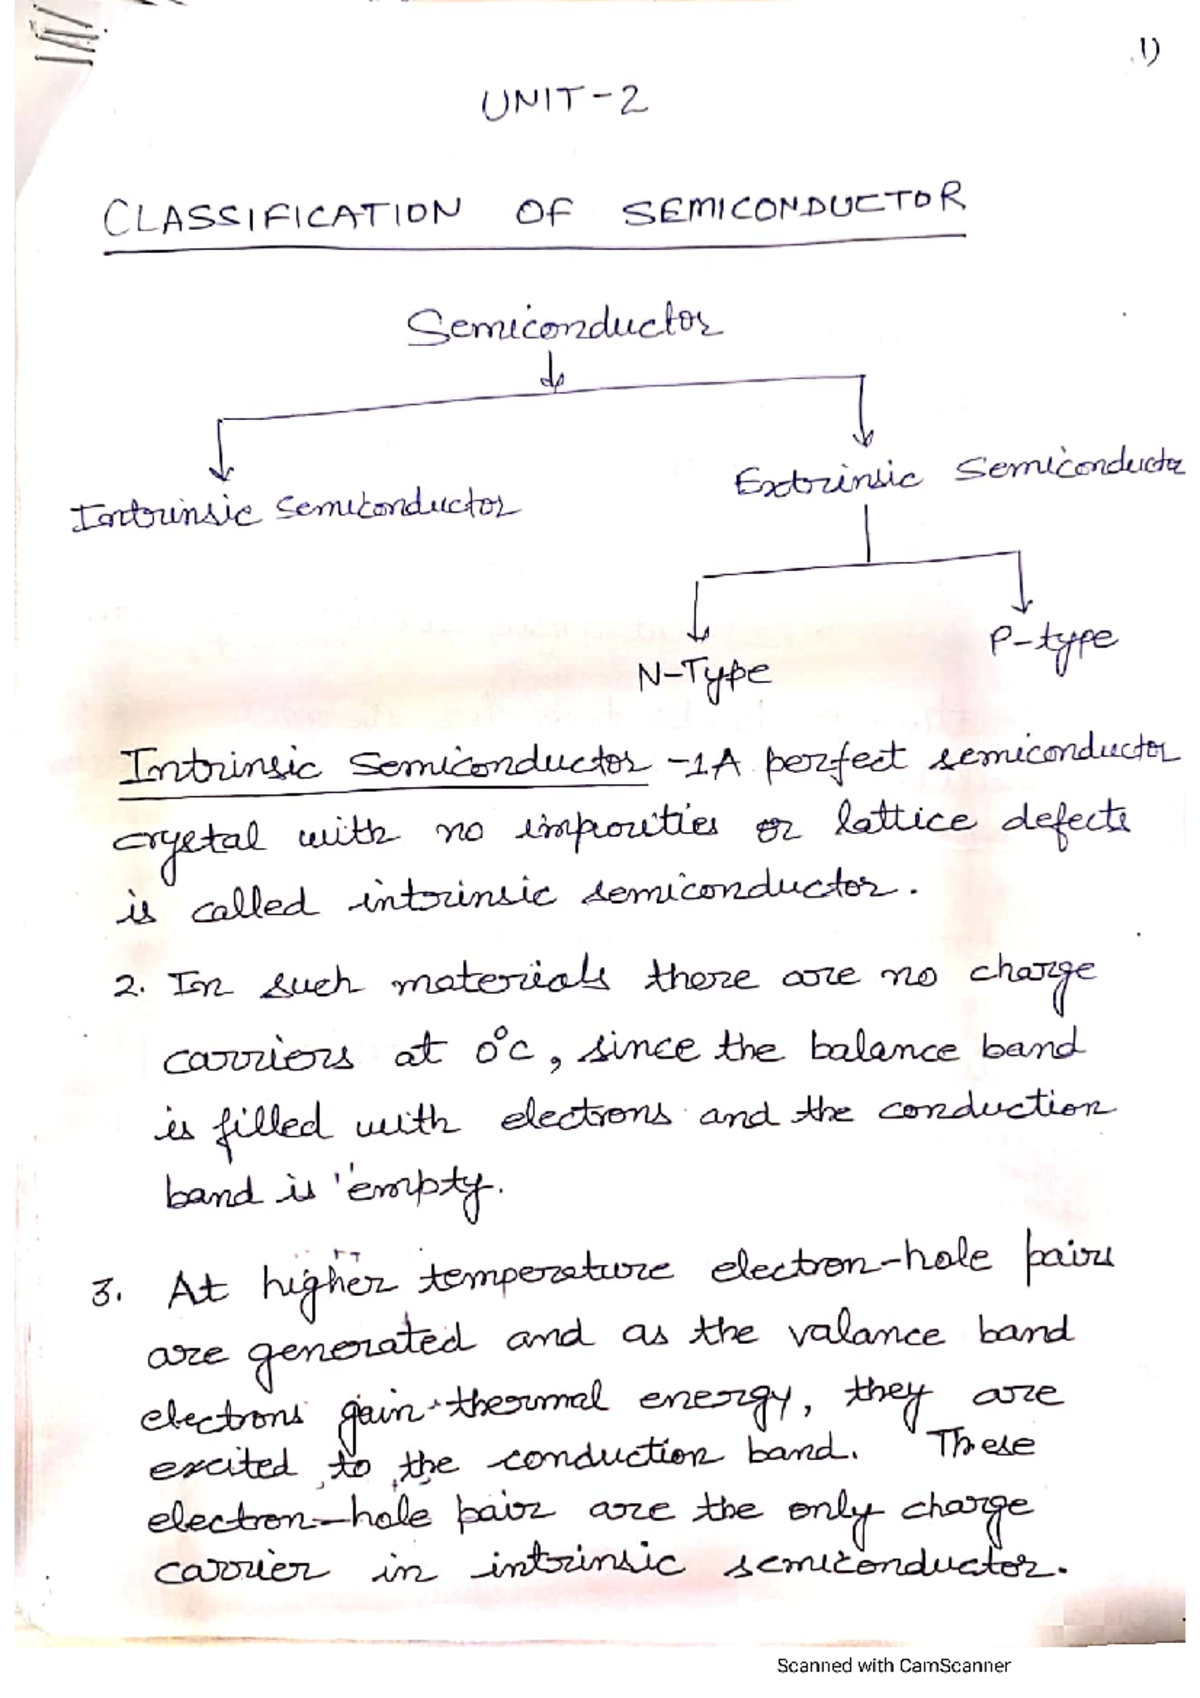 1)
UNIT-2
CLASSIFICATION OF SEMICONDUCTOR
Semiconductor
Intrinsic Semiconductor
Extrinsic Semiconductor
N-Type
P-type
Intrinsic Semiconductor - 1 A perfect semiconductor
crystal with no impurities or lattice defects
is called intrinsic semiconductor.
2. In such materials there are no charge
carriers at 0°C, since the balance band
is filled with electrons and the conduction
band is empty.
3. At higher temperature electron-hole pairs
are generated and as the valance band
electrons gain thermal energy, they are
excited to the conduction band. These
electron-hole pair are the only charge
carrier in intrinsic semiconductor.
Scanned with CamScanner